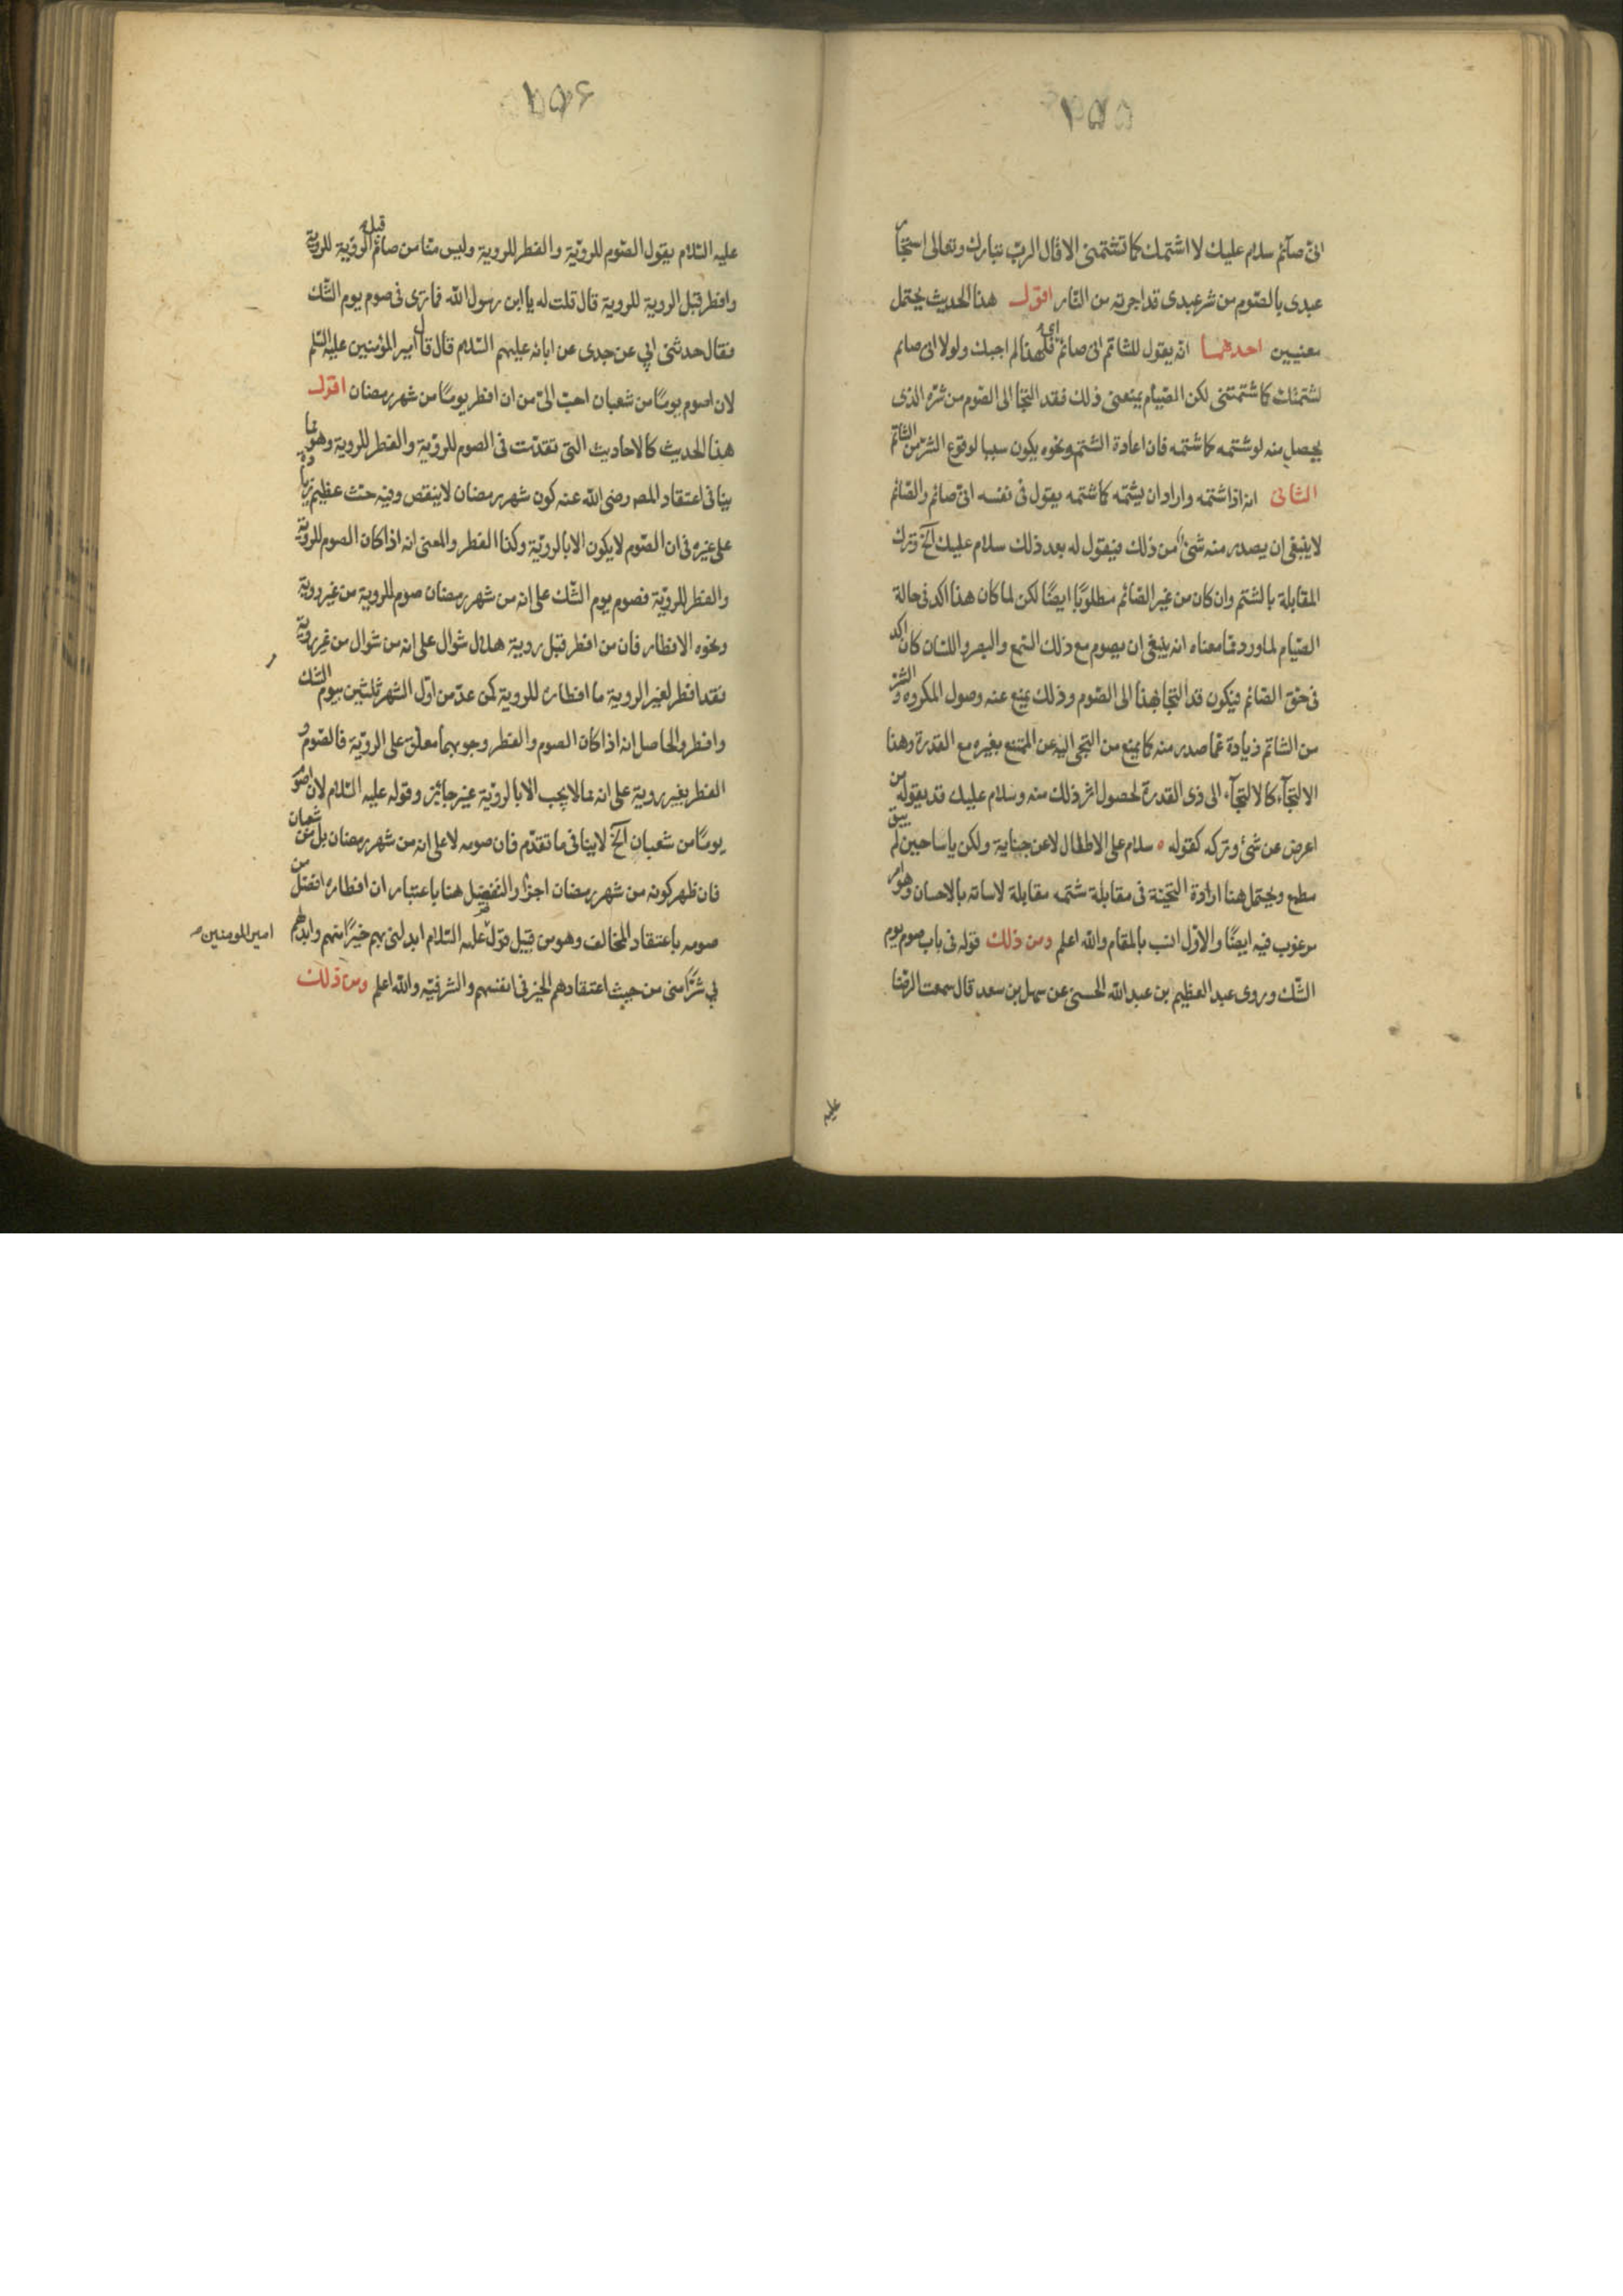 ١٥٥
انى صآئم سلام عليك لا اشتمك كما تشتمنى الا قال الرب تبارك وتعالى استجآر
عبدى بالصّوم من شر عبدى قد اجرته من النّار اقول هذا الحديث يحتمل
معنيين احدهما انّه يقول للشاتم انى صائم اى فلهذا لم اجبك ولولا انى صائم
لشتمتك كما شتمتنى لكن الصّيام يمنعنى ذلك فقد التجأ الى الصّوم من شرّه الذى
يحصل منه لو شتمه كما شتمه فان اعادة الشتم ونحوه يكون سببا لوقوع الشرّ من الشاتم
الثانى انه اذا شتمه واراد ان يشتمه كما شتمه يقول فى نفسه انىّ صائم والصّائم
لا ينبغى ان يصدر منه شئ من ذلك فيقول له بعد ذلك سلام عليك آلخ وترك
المقابلة بالشتم وان كان من غير الصّائم مطلوبًا ايضًا لكن لما كان هذا اكد فى حالة
الصّيام لما ورد ممّا معناه انه ينبغى ان يصوم مع ذلك السّمع والبصر واللسان كان اكد
فى حق الصّائم فيكون قد التجأ بهذا الى الصّوم وذلك يمنع عنه وصول المكروه والشرّ
من الشاتم زيادة عمّا صدر منه كما يمنع من التجى اليه عن الممتنع بغيره مع القدرة وهذا
الالتجآء كالالتجآء الى ذى القدرة لحصول اثر ذلك منه وسلام عليك قد يقوله من
اعرض عن شئ وتركه كقوله ٥ سلام على الاطلال لا عن جناية ولكن ياسا حين لم يبق
مطمع ويحتمل هنا ارادة التحيّة فى مقابلة شتمه مقابلة لاسائه بالاحسان وهو امر
مرغوب فيه ايضًا والاوّل انسب بالمقام والله اعلم ومن ذلك قوله فى باب صوم يوم
الشّك وروى عبد العظيم بن عبد الله الحسنى عن سهل بن سعد قال سمعت الرضا
عليه
١٥٦
عليه السّلام يقول الصّوم للرويّة والفطر للروية وليس منّا من صائم قبل الرويّة للروية
وافطر قبل الروية للروية قال قلت له يا ابن رسول الله فما ترى فى صوم يوم الشّك
فقال حدثنى ابي عن جدى عن ابائه عليهم السّلام قال قال امير المؤمنين عليه السّلم
لان اصوم يومًا من شعبان احبّ الىّ من ان افطر يومًا من شهر رمضان اقول
هذا الحديث كالاحاديث التى تقدّمت فى الصوم للرؤية والفطر للروية وهو مما
ينافى اعتقاد المصـ رضى الله عنه كون شهر رمضان لا ينقص وفيه حث عظيم زيادة
على غيره فى ان الصّوم لا يكون الا بالرويّة وكذا الفطر والمعنى انه اذا كان الصوم للروية
والفطر للرويّة فصوم يوم الشّك على انه من شهر رمضان صوم للروية من غير روية
ونحوه الافطار فان من افطر قبل روية هلال شوال على انه من شوال من غير روية
فقد افطر لغير الروية ما افطاره للروية كمن عدّ من اوّل الشهر ثلثين بيوم الشك
وافطر والحاصل انه اذا كان الصوم والفطر وجوبهما معلّق على الرويّة فالصّوم و
الفطر بغير روية على انه مما لا يجب الا بالرويّة غير جائز وقوله عليه السّلام لان اصوم
يومًا من شعبان آلخ لا ينافى ما تقدّم فان صومه لا على انه من شهر رمضان بل من شعبان
فان ظهر كونه من شهر رمضان اجزأ والتفضيل هنا باعتبار ان افطاره افضل من
صومه باعتقاد المخالف وهو من قبيل قول عليه السّلام ابدلنى بهم خيرًا منهم وابدلهم
امير المومنين صـ
بي شرًّا منى من حيث اعتقادهم الخير فى انفسهم والشر فيّه والله اعلم ومن ذلك